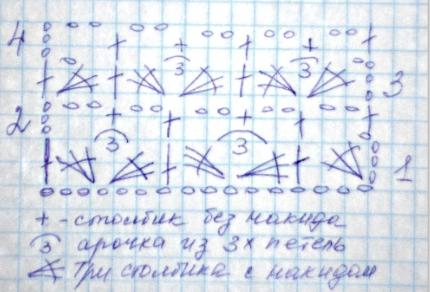 4
3 3
3
2
3 3
1
+ - столбик без накида
3 арочка из 3х петель
Три столбика с накидом